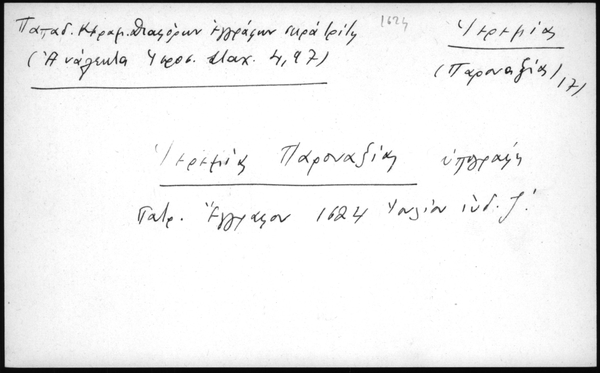 Παπαδ. Κεραμ. Διαφόρων ἐγγράφων σειρὰ τρίτη
1624
Ἱερεμίας
(Ἀνάλεκτα Ἱεροσ. Σταχ. 4, 97)
(Παροναξίας) 17)
Ἱερεμίας Παροναξίας ὑπογραφὴ
Πατρ. Ἔγγραφον 1624 Ἰουλίου ἰνδ. ζ΄.